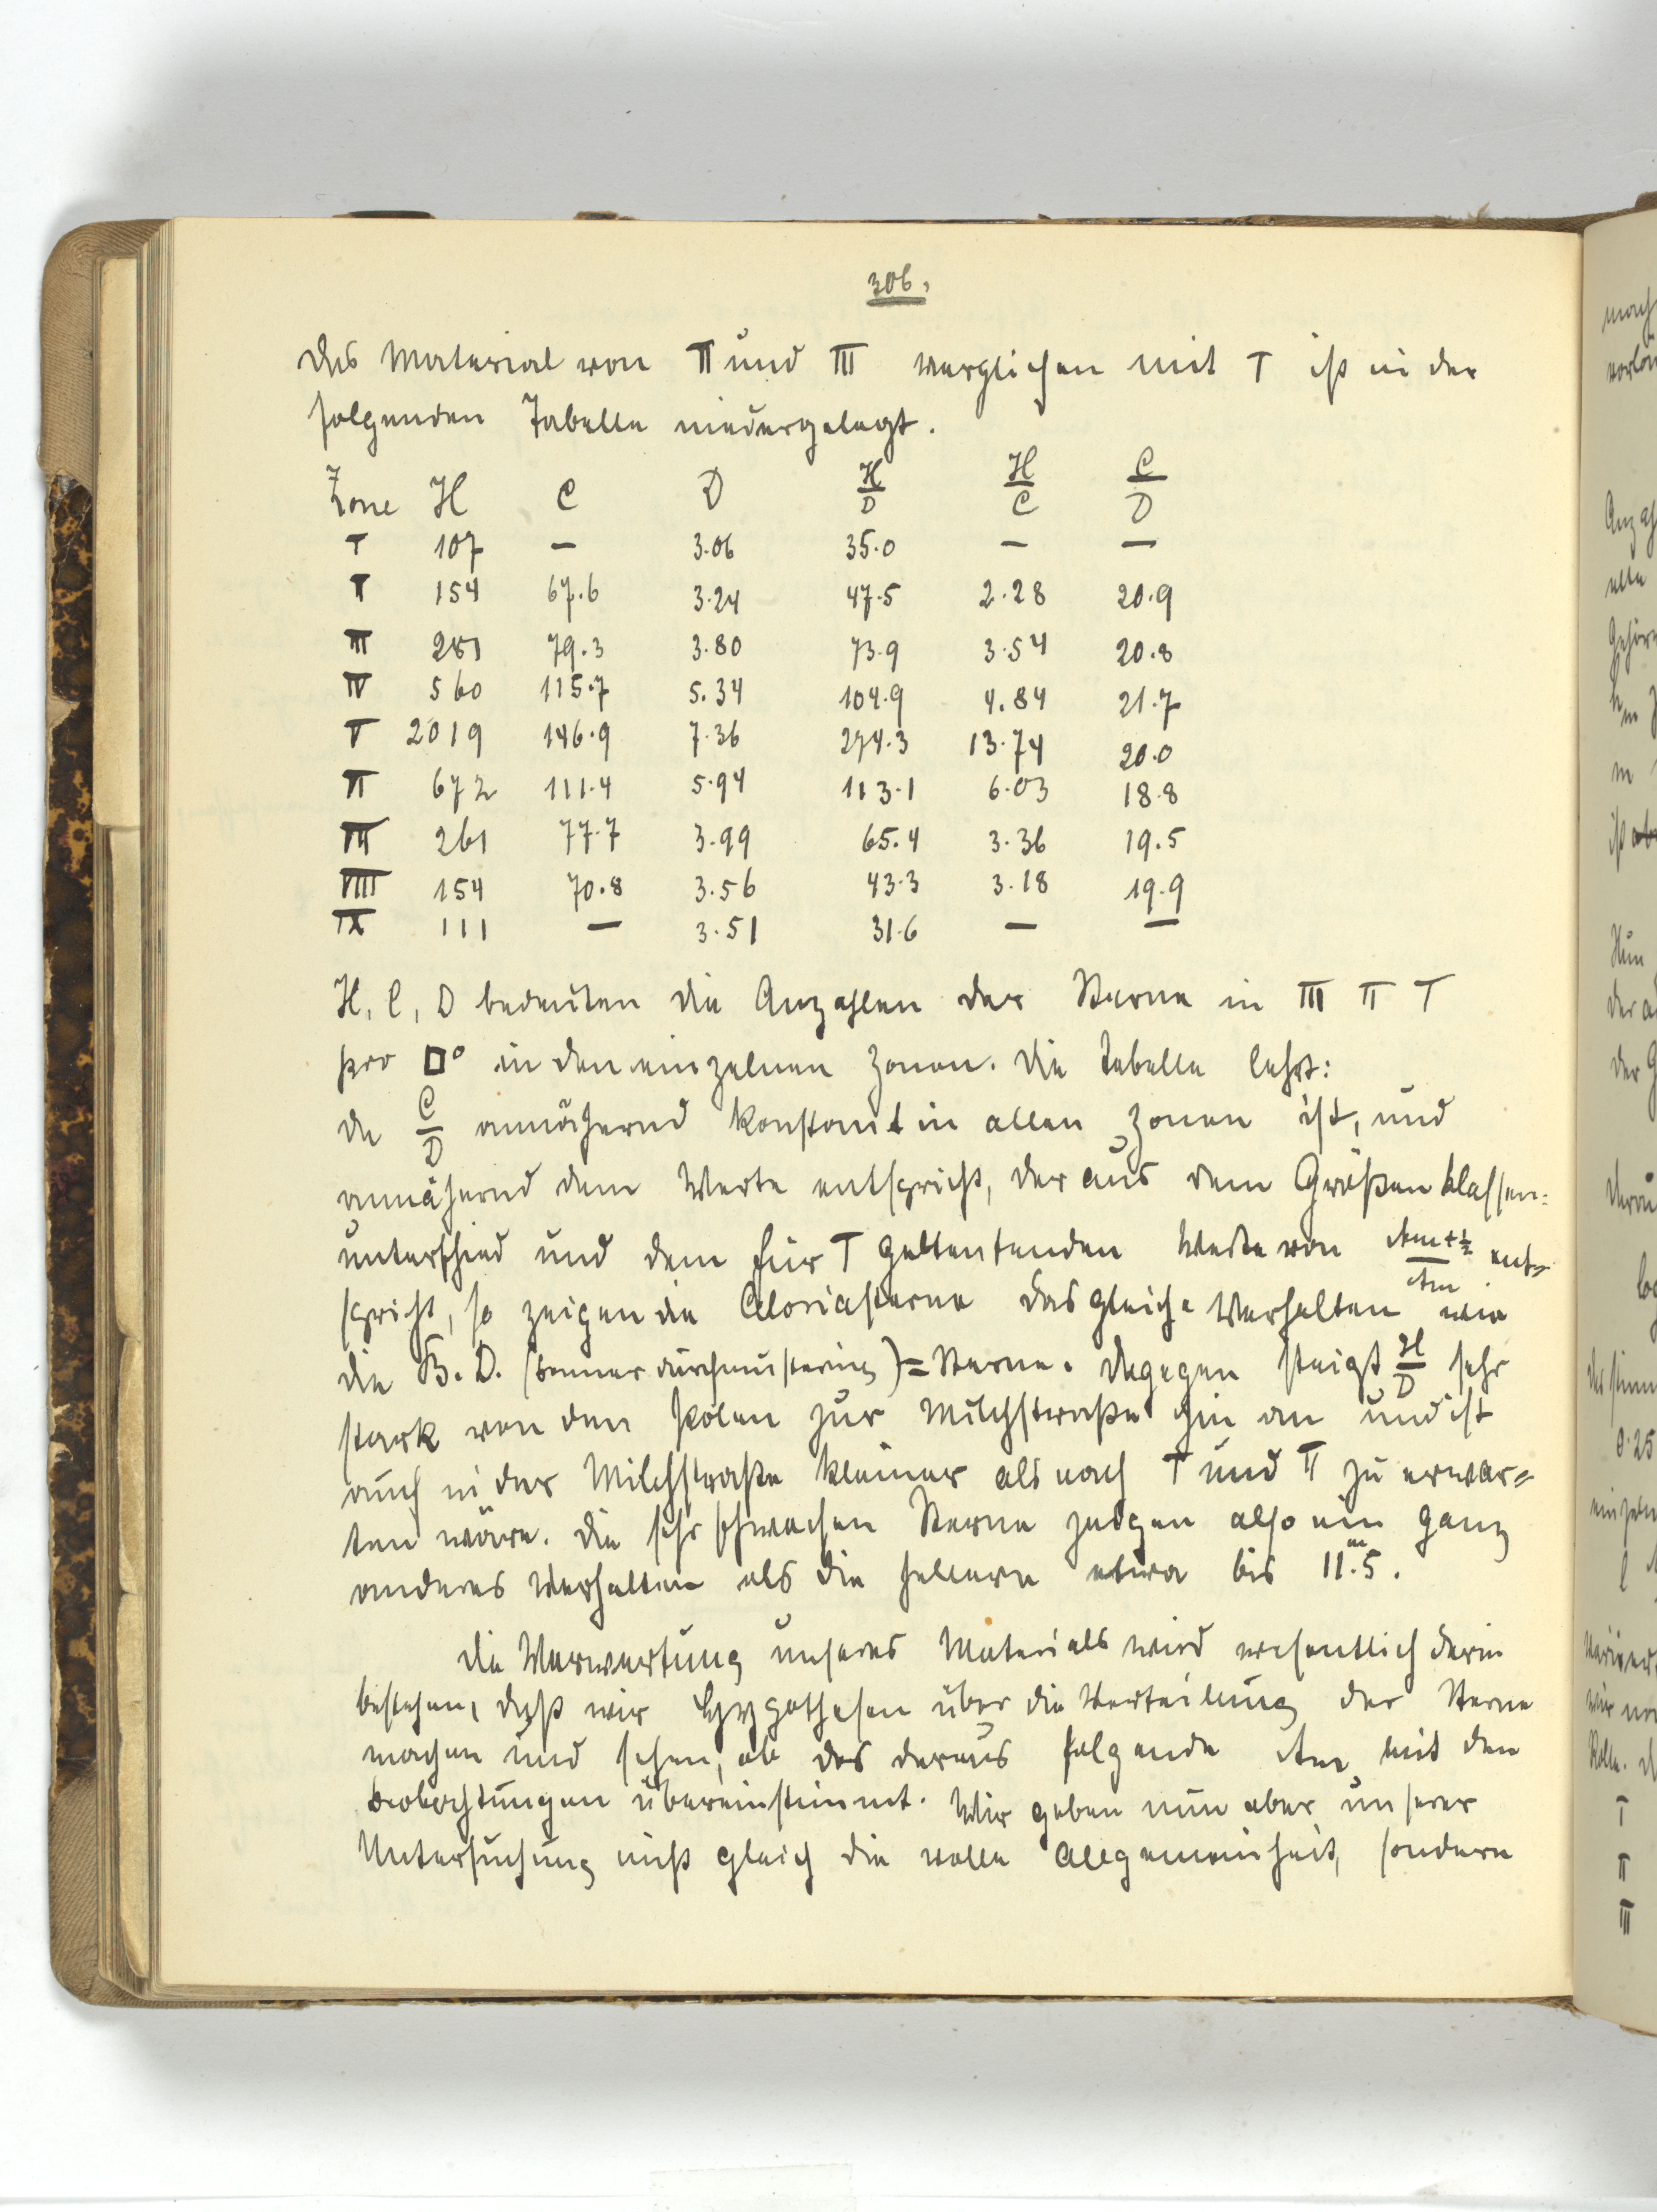 306.
Das Material von II und III verglichen mit I ist in der
folgenden Tabelle niedergelegt.
Zone H C D H/D H/C C/D
I 107 — 3.06 35.0 — —
II 154 67.6 3.24 47.5 2.28 20.9
III 281 79.3 3.80 73.9 3.54 20.8
IV 560 115.7 5.34 104.9 4.84 21.7
V 2019 146.9 7.36 274.3 13.74 20.0
VI 672 111.4 5.94 113.1 6.03 18.8
VII 261 77.7 3.99 65.4 3.36 19.5
VIII 154 70.8 3.56 43.3 3.18 19.9
IX 111 — 3.51 31.6 — —
H, C, D bedeuten die Anzahlen der Sterne in III II I
pro □° in den einzelnen Zonen. Die Tabelle lehrt:
da C/D annähernd konstant in allen Zonen ist, und
annähernd dem Werte entspricht, der aus dem Größenklassen=
unterschied und dem für I geltentenden Werte von Am+½/Am ent=
spricht, so zeigen die Celoriasterne das gleiche Verhalten wie
die B.D. (Bonner Durchmusterung)=Sterne. Dagegen steigt H/D sehr
stark von den Polen zur Milchstraße hin an und ist
auch in der Milchstraße kleiner als nach I und II zu erwar=
ten wäre. Die sehr schwachen Sterne zeigen also ein ganz
anderes Verhalten als die hellern etwa bis 11.ᵐ5.
Die Verwertung unseres Materials wird wesentlich darin
bestehen, daß wir Hypothesen über die Verteilung der Sterne
machen und sehen, ob das daraus folgende Am mit den
Beobachtungen übereinstimmt. Wir geben nun aber unserer
Untersuchung nicht gleich die volle Allgemeinheit, sondern